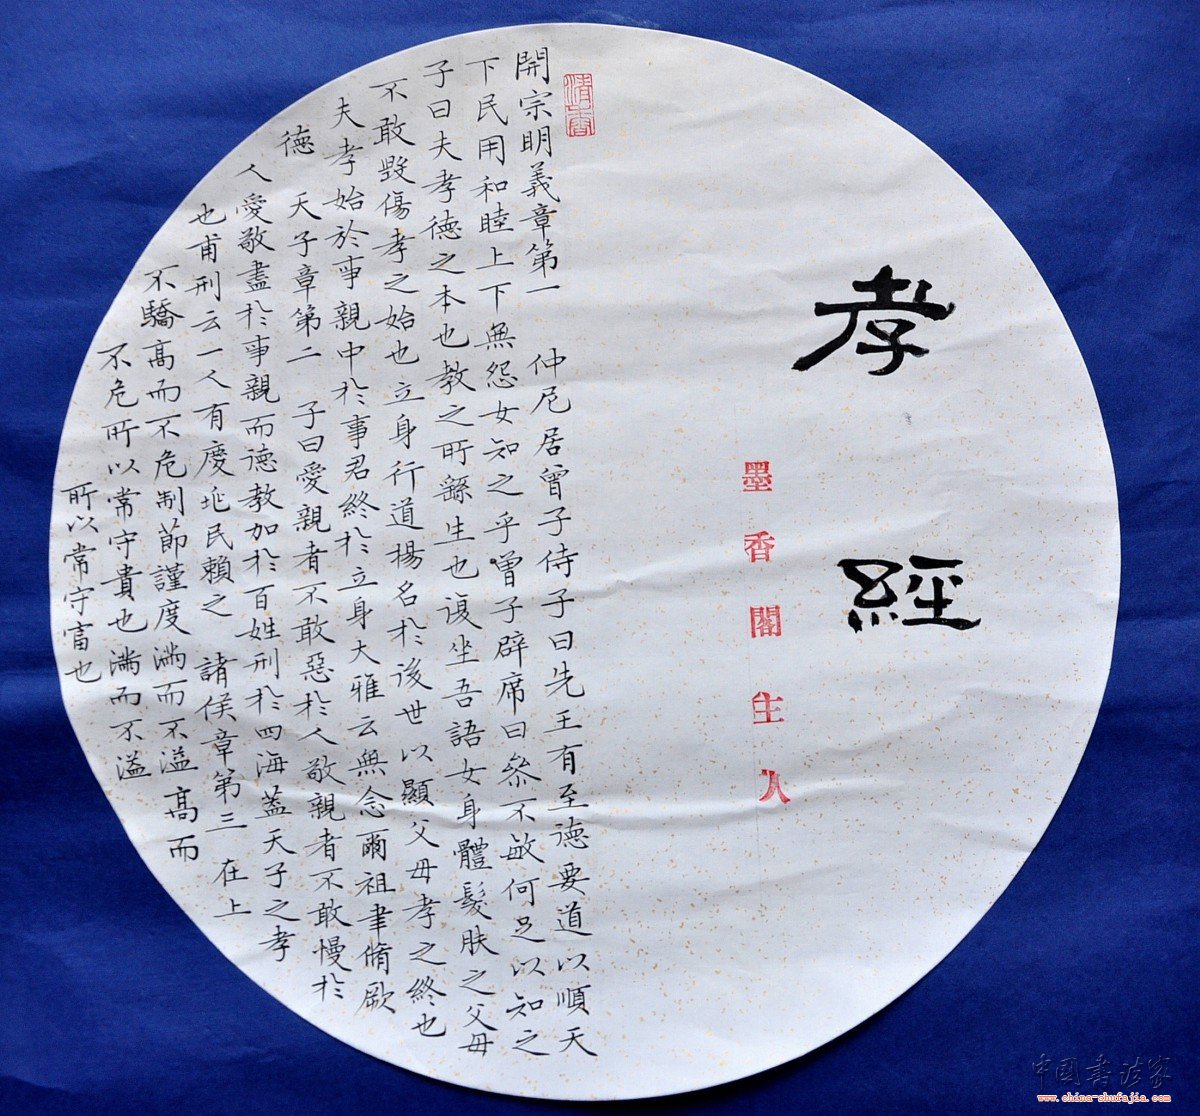 孝經
墨香閣主人
清香
開宗明義章第一 仲尼居曾子侍子曰先王有至德要道以順天
下民用和睦上下無怨女知之乎曾子辟席曰參不敏何足以知之
子曰夫孝德之本也教之所繇生也復坐吾語女身體髮膚之父母
不敢毀傷孝之始也立身行道揚名於後世以顯父母孝之終也
夫孝始於事親中於事君終於立身大雅云無念爾祖聿脩厥
德 天子章第二 子曰愛親者不敢惡於人敬親者不敢慢於
人愛敬盡於事親而德教加於百姓刑於四海蓋天子之孝
也甫刑云一人有慶兆民賴之 諸侯章第三 在上
不驕高而不危制節謹度滿而不溢高而
不危所以常守貴也滿而不溢
所以常守富也
中国书法家
www.china-shufajia.com